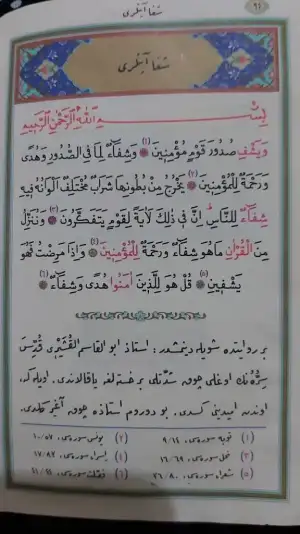 شفا آیتلری
٩١
شفا آیتلری
بِسْمِ اللهِ الرَّحْمٰنِ الرَّحِيمِ
وَيَشْفِ صُدُورَ قَوْمٍ مُؤْمِنِينَ (١) وَشِفَاءٌ لِمَا فِي الصُّدُورِ وَهُدًى
وَرَحْمَةٌ لِلْمُؤْمِنِينَ (٢) يَخْرُجُ مِنْ بُطُونِهَا شَرَابٌ مُخْتَلِفٌ اَلْوَانُهُ فِيهِ
شِفَاءٌ لِلنَّاسِ اِنَّ فِي ذٰلِكَ لَاٰيَةً لِقَوْمٍ يَتَفَكَّرُونَ (٣) وَنُنَزِّلُ
مِنَ الْقُرْاٰنِ مَا هُوَ شِفَاءٌ وَرَحْمَةٌ لِلْمُؤْمِنِينَ (٤) وَاِذَا مَرِضْتُ فَهُوَ
يَشْفِينِ (٥) قُلْ هُوَ لِلَّذِينَ اٰمَنُوا هُدًى وَشِفَاءٌ (٦)
بر روایتده شویله دینمشدر: استاذ ابو القاسم القُشَيْرِى قُدِّسَ
سِرُّهُنك اوغلی چوق شدتلی بر خسته‌لغه یاقالاندی. اویله که،
اوندن امیدینی کسدی. بو دوروم استاذه چوق آغیر کلدی.
(١) توبه سوره‌سی، ٩/١٤ (٢) یونس سوره‌سی، ١٠/٥٧
(٣) نحل سوره‌سی، ١٦/٦٩ (٤) اسراء سوره‌سی، ١٧/٨٢
(٥) شعراء سوره‌سی، ٢٦/٨٠ (٦) فصلت سوره‌سی، ٤١/٤٤